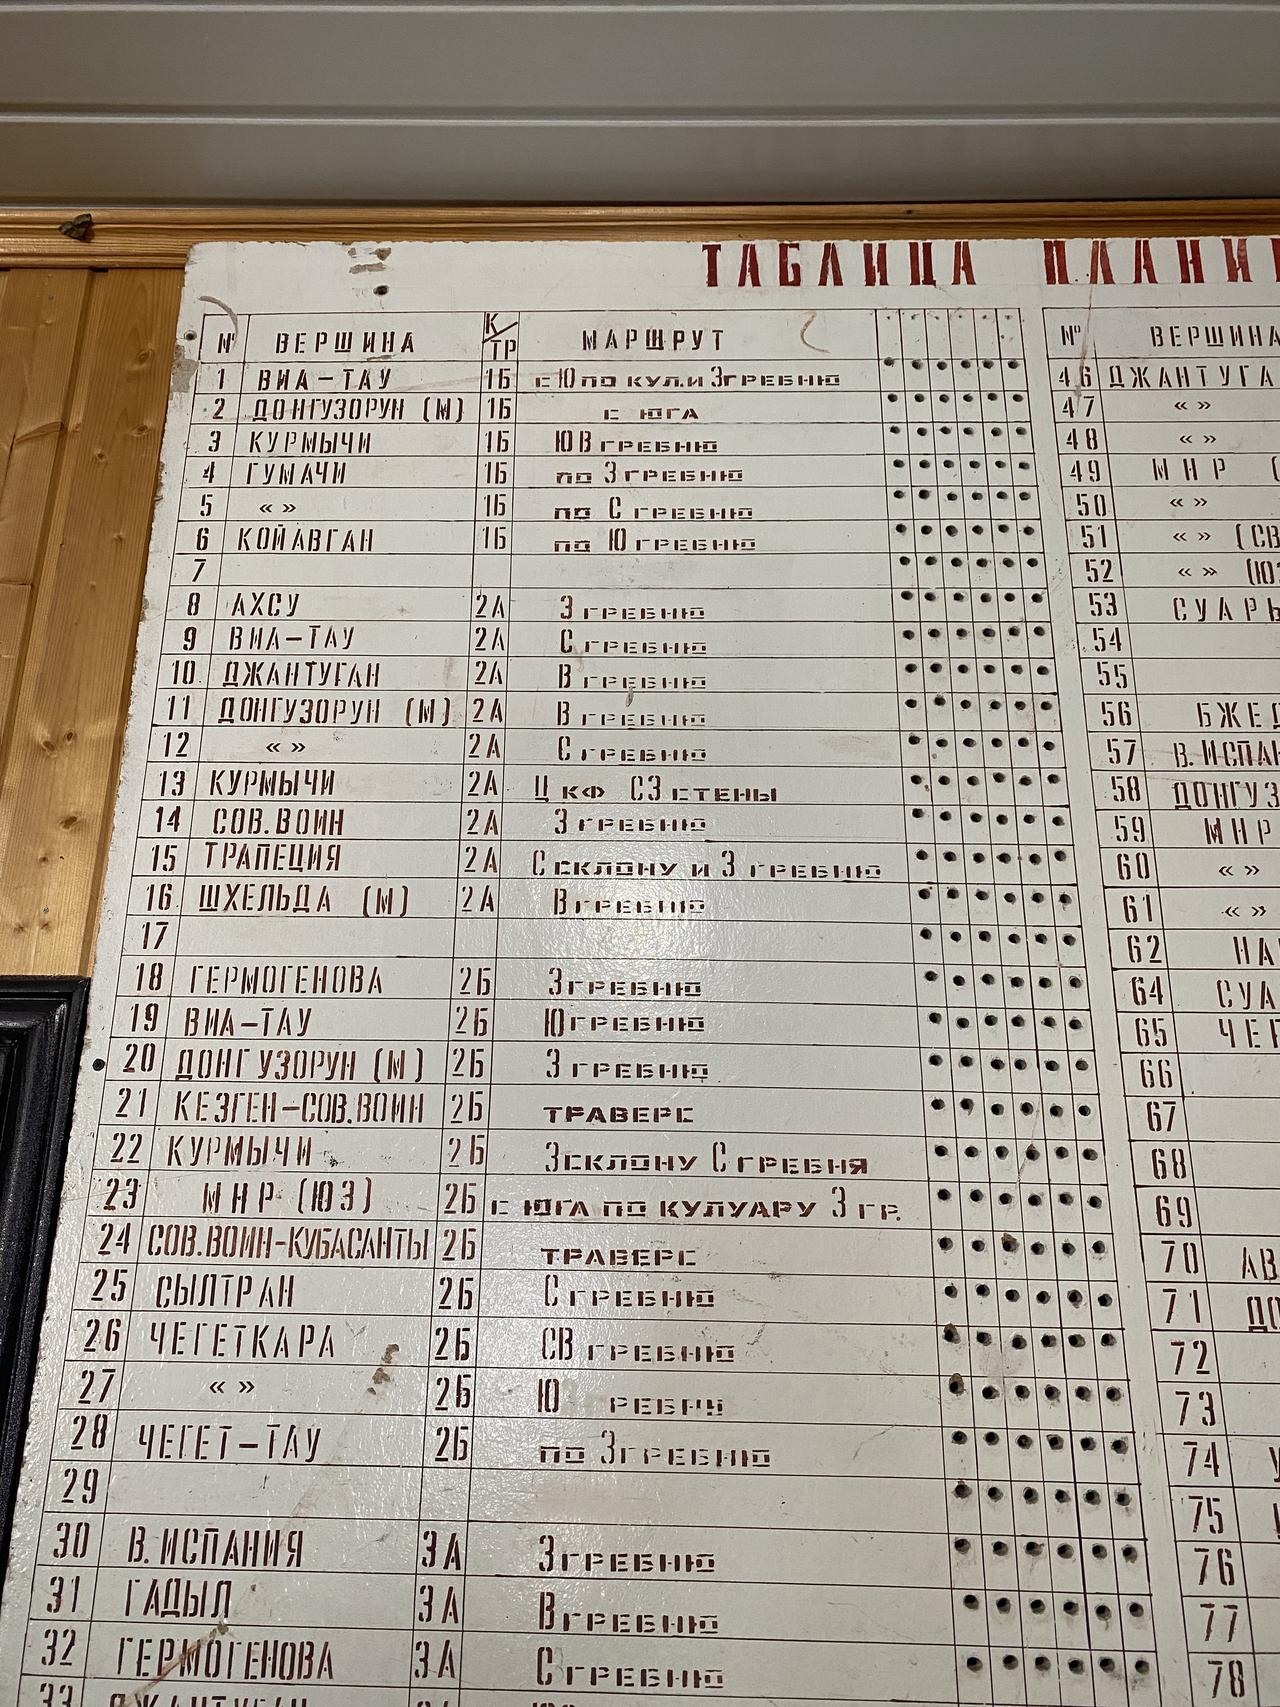 ТАБЛИЦА
№ ВЕРШИНА К/ТР МАРШРУТ
1 ВИА-ТАУ 1Б с Ю по кул. и З гребню
2 ДОНГУЗОРУН (М) 1Б с юга
3 КУРМЫЧИ 1Б ЮВ гребню
4 ГУМАЧИ 1Б по З гребню
5 « » 1Б по С гребню
6 КОЙАВГАН 1Б по Ю гребню
7
8 АХСУ 2А З гребню
9 ВИА-ТАУ 2А С гребню
10 ДЖАНТУГАН 2А В гребню
11 ДОНГУЗОРУН (М) 2А В гребню
12 « » 2А С гребню
13 КУРМЫЧИ 2А Ц кф СЗ стены
14 СОВ.ВОИН 2А З гребню
15 ТРАПЕЦИЯ 2А С склону и З гребню
16 ШХЕЛЬДА (М) 2А В гребню
17
18 ГЕРМОГЕНОВА 2Б З гребню
19 ВИА-ТАУ 2Б Ю гребню
20 ДОНГУЗОРУН (М) 2Б З гребню
21 КЕЗГЕН-СОВ.ВОИН 2Б траверс
22 КУРМЫЧИ 2Б З склону С гребня
23 МНР (ЮЗ) 2Б с юга по кулуару З гр.
24 СОВ.ВОИН-КУБАСАНТЫ 2Б траверс
25 СЫЛТРАН 2Б С гребню
26 ЧЕГЕТКАРА 2Б СВ гребню
27 « » 2Б Ю
28 ЧЕГЕТ-ТАУ 2Б по З гребню
29
30 В.ИСПАНИЯ 3А З гребню
31 ГАДЫЛ 3А В гребню
32 ГЕРМОГЕНОВА 3А С гребню
33
№ ВЕРШИНА
46 ДЖАНТУГА
47 « »
48 « »
49 МНР (
50 « »
51 « » (СВ
52 « »
53 СУАРЫ
54
55
56
57
58
59 МНР
60 « »
61 « »
62
64
65
66
67
68
69
70
71
72
73
74
75
76
77
78